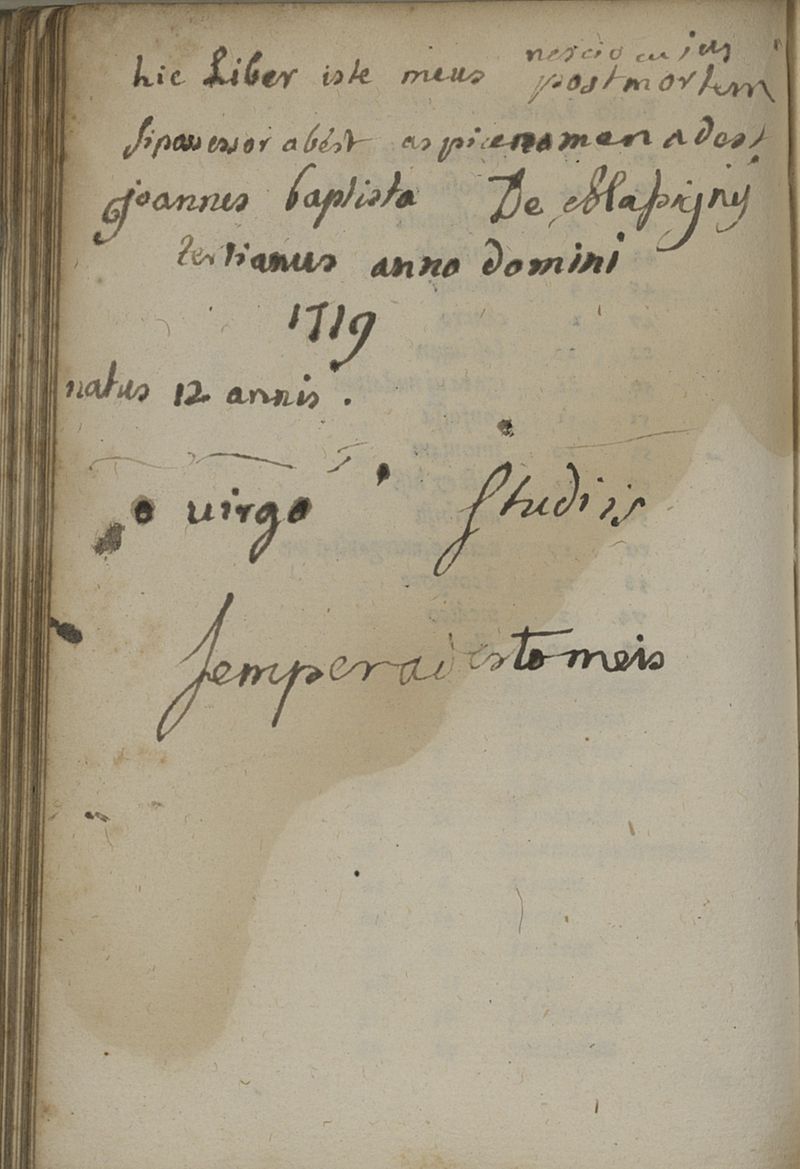 hic Liber iste meus nescio cuius
postmortem
si possessor abést aspice nomen adest
joannes baptista De
tertianus anno domini
1719
natus 12 annis.
o virgo Studiis
semper adesto meis